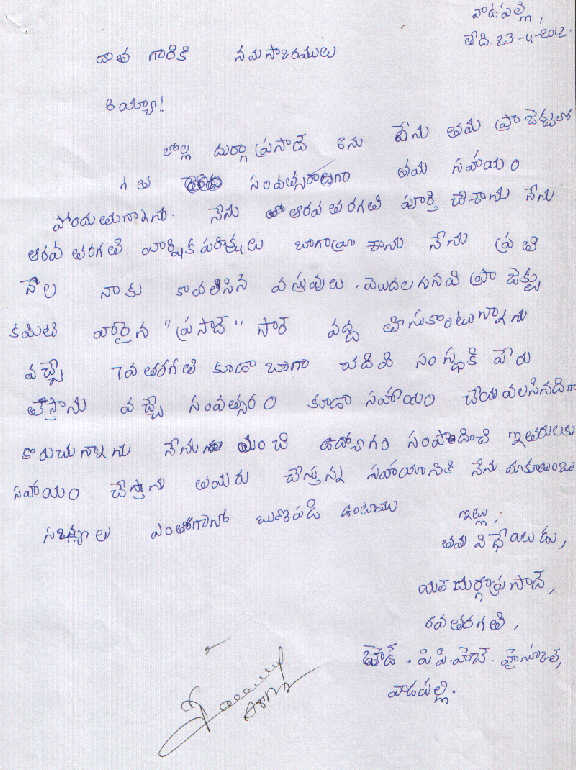 వాడపల్లి,
తేది. 23-4-2012.
దాత గారికి నమస్కారములు
అయ్యా!
దుర్గాప్రసాద్ అను నేను తమ ప్రాజెక్టులో
గత సంవత్సరాలుగా తమ సహాయం
పొందుతున్నాను. నేను 6వ తరగతి పూర్తి చేశాను నేను
ఆరవ తరగతి వార్షిక పరీక్షలు బాగా వ్రాశాను నేను ప్రతి
నెల నాకు కావలసిన వస్తువులు. మొదలగునవి ప్రాజెక్టు
కమిటి "ప్రసాద్" సార్ వద్ద తీసుకుంటున్నాను
వచ్చే 7వ తరగతి కూడా బాగా చదివి సంస్థకి పేరు
తెస్తాను వచ్చే సంవత్సరం కూడా సహాయం చేయవలసినదిగా
కోరుచున్నాను నేను మంచి ఉద్యోగం సంపాదించి ఇతరులకు
సహాయం చేస్తాను చేస్తున్న సహాయానికి నేను మా కుటుంబ
సభ్యులు ఎంతగానో ఋణపడి ఉంటాము
ఇట్లు,
తమ విధేయుడు,
దుర్గాప్రసాద్,
6వ తరగతి,
హైస్కూల్,
వాడపల్లి.